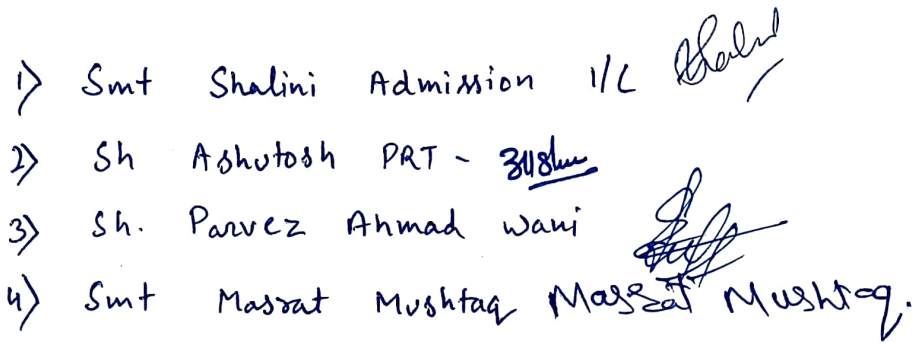 1) Smt Shalini Admission I/C Shalini
2) Sh Ashutosh PRT -
3) Sh. Parvez Ahmad Wani
4) Smt Masrat Mushtaq Massat Mushtaq.